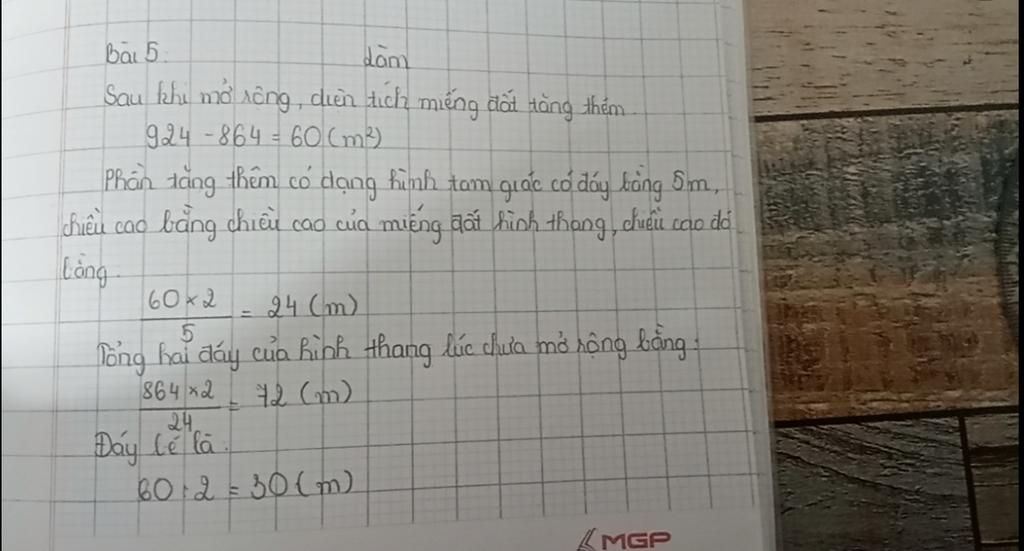 Bài 5.
làm
Sau khi mở rộng, diện tích miếng đất tăng thêm.
924 - 864 = 60 (m²)
Phần tăng thêm có dạng hình tam giác có đáy bằng 5m,
chiều cao bằng chiều cao của miếng đất hình thang, chiều cao đó
bằng.
60 × 2 / 5 = 24 (m)
Tổng hai đáy của hình thang lúc chưa mở rộng bằng:
864 × 2 / 24 = 72 (m)
Đáy bé là.
60 : 2 = 30 (m)
MGP